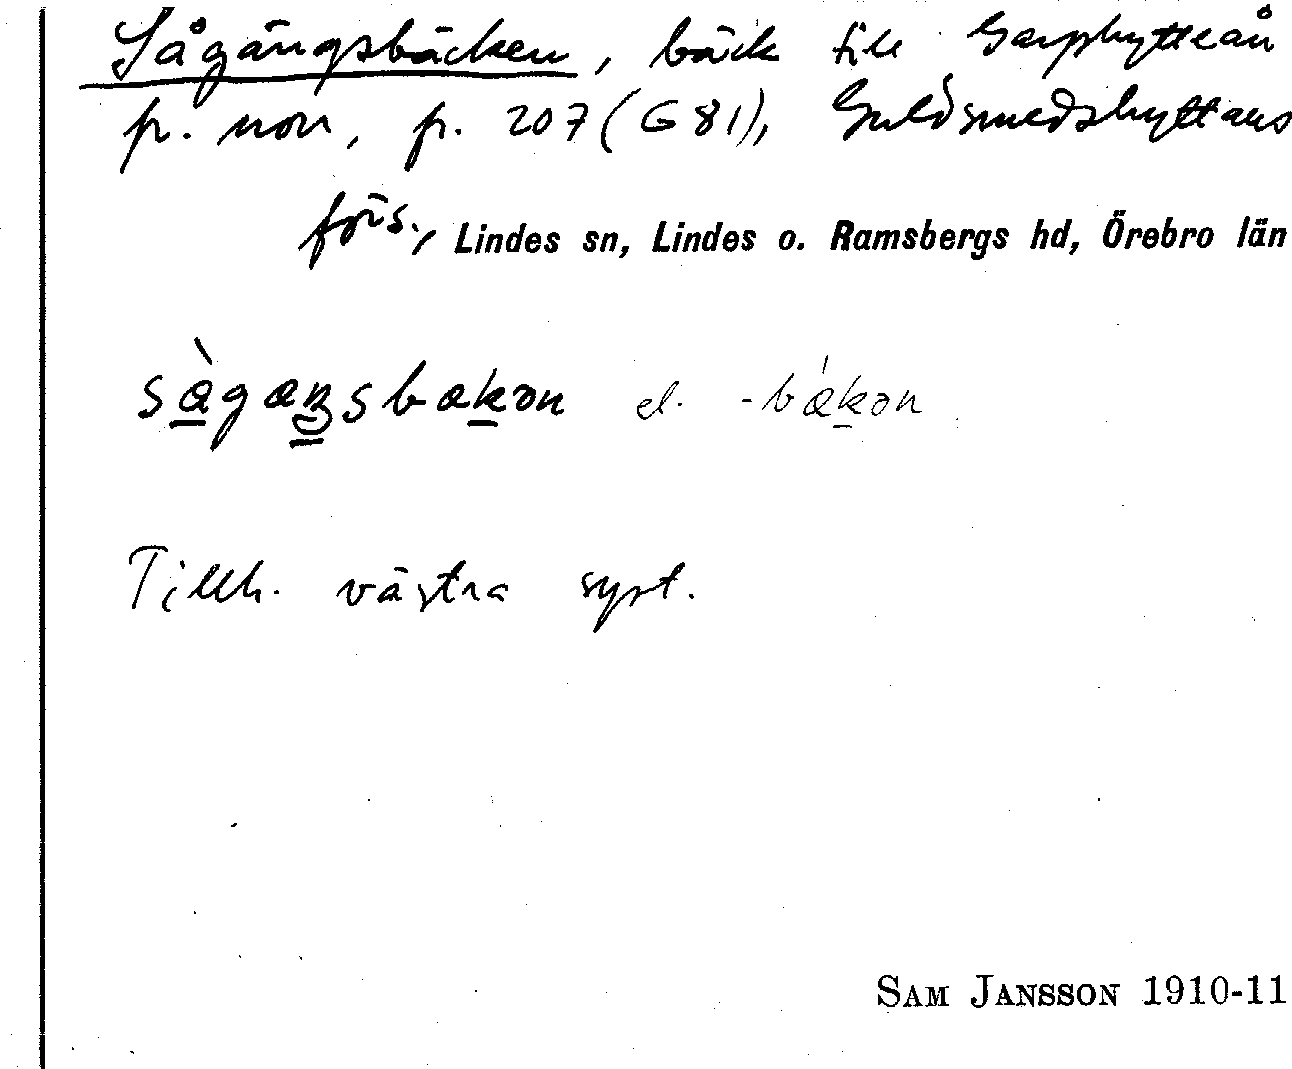 Sågängsbäcken, bäck till Garphytteån
fr. norr, fr. 207 (G 81), Guldsmedshyttans
förs., Lindes sn, Lindes o. Ramsbergs hd, Örebro län
el.
Tillh. västra syst.
SAM JANSSON 1910-11